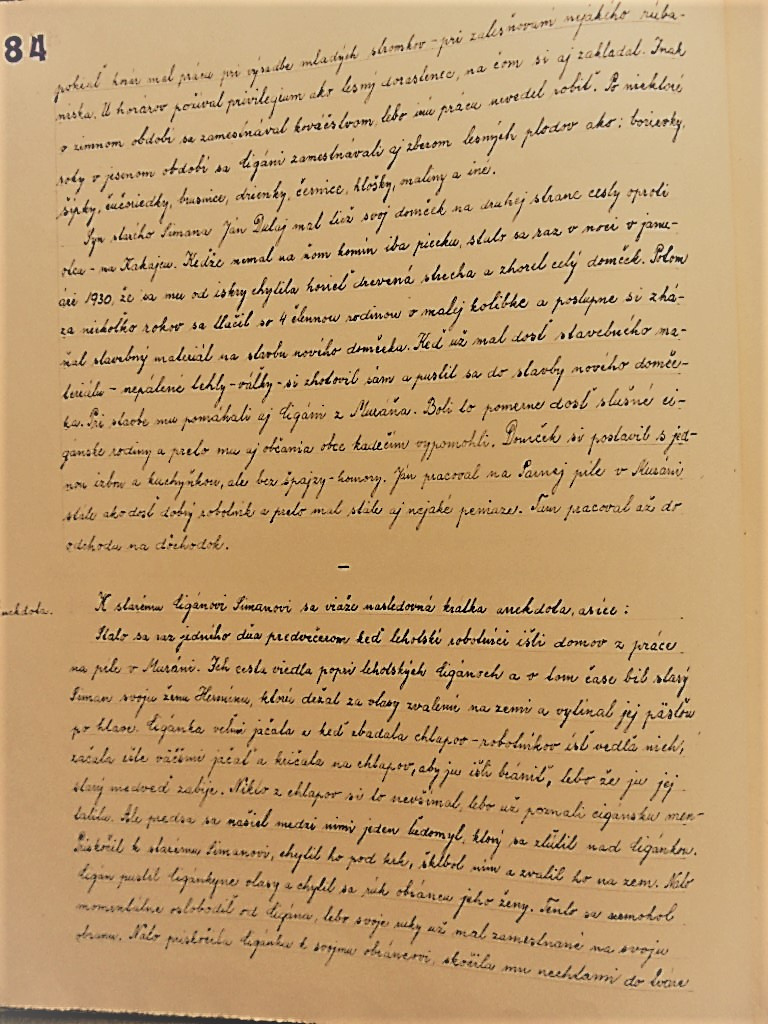 84
pokiaľ horár mal prácu pri výsadbe mladých stromkov - pri zalesňovaní nejakého rúba-
niska. U horárov požíval privilégium ako lesný dorastenec, na čom si aj zakladal. Inak
v zimnom období sa zamestnával kováčstvom, lebo inú prácu nevedel robiť. Po niektoré
roky v jesenom období sa Cigáni zamestnávali aj zberom lesných plodov ako: borievky,
šípky, čučoriedky, brusnice, drienky, černice, hlošky, maliny a iné.
Syn starého Simana Ján Duluj mal tiež svoj domček na druhej strane cesty oproti
otca - na Kakajcu. Kedže nemal na ňom komín iba piecku, stalo sa raz v noci v janu-
ári 1930, že sa mu od iskry chytila horieť drevená strecha a zhorel celý domček. Potom
za niekoľko rokov sa tlačil so 4 člennou rodinou v malej kolibke a postupne si zhá-
ňal stavebný materiál na stavbu nového domčeka. Keď už mal dosť stavebného ma-
teriálu - nepálené tehly - váľky - si zhotovil sám a pustil sa do stavby nového domče-
ka. Pri stavbe mu pomáhali aj Cigáni z Muráňa. Boli to pomerne dosť slušné ci-
gánske rodiny a preto mu aj občania obce kadečím vypomohli. Domček si postavil s jed-
nou izbou a kuchyňkou, ale bez špajzy - komory. Ján pracoval na Parnej píle v Muráni
stále ako dosť dobrý robotník a preto mal stále aj nejaké peniaze. Tam pracoval až do
odchodu na dôchodok.
-
nekdota.
K starému Cigánovi Simanovi sa viaže nasledovná kratka anekdota, a síce:
Stalo sa raz jedného dňa predvečerom keď lehotskí robotníci išli domov z práce
na píle v Muráni. Ich cesta viedla popri lehotských Cigánoch a o tom čase bil starý
Siman svoju ženu Hermínu, ktorú držal za vlasy zvalenú na zemi a vytínal jej päsťou
po hlave. Cigánka veľmi jačala a keď zbadala chlapov - robotníkov ísť vedľa nich,
začala ište väčšmi jačať a kričala na chlapov, aby ju išli brániť, lebo že ju jej
starý medveď zabije. Nikto z chlapov si to nevšímal, lebo už poznali cigánsku men-
talitu. Ale predsa sa našiel medzi nimi jeden ľudomyl, ktorý sa zľútil nad Cigánkou.
Priskočil k starému Simanovi, chytil ho pod krk, šklbol ním a zvalil ho na zem. Nato
Cigán pustil Cigánkyne vlasy a chytil sa rúk obráncu jeho ženy. Tento sa nemohol
momentálne oslobodiť od Cigána, lebo svoje ruky už mal zamestnané na svoju
obranu. Nato priskočila Cigánka k svojmu obráncovi, skočila mu nechtami do tváre